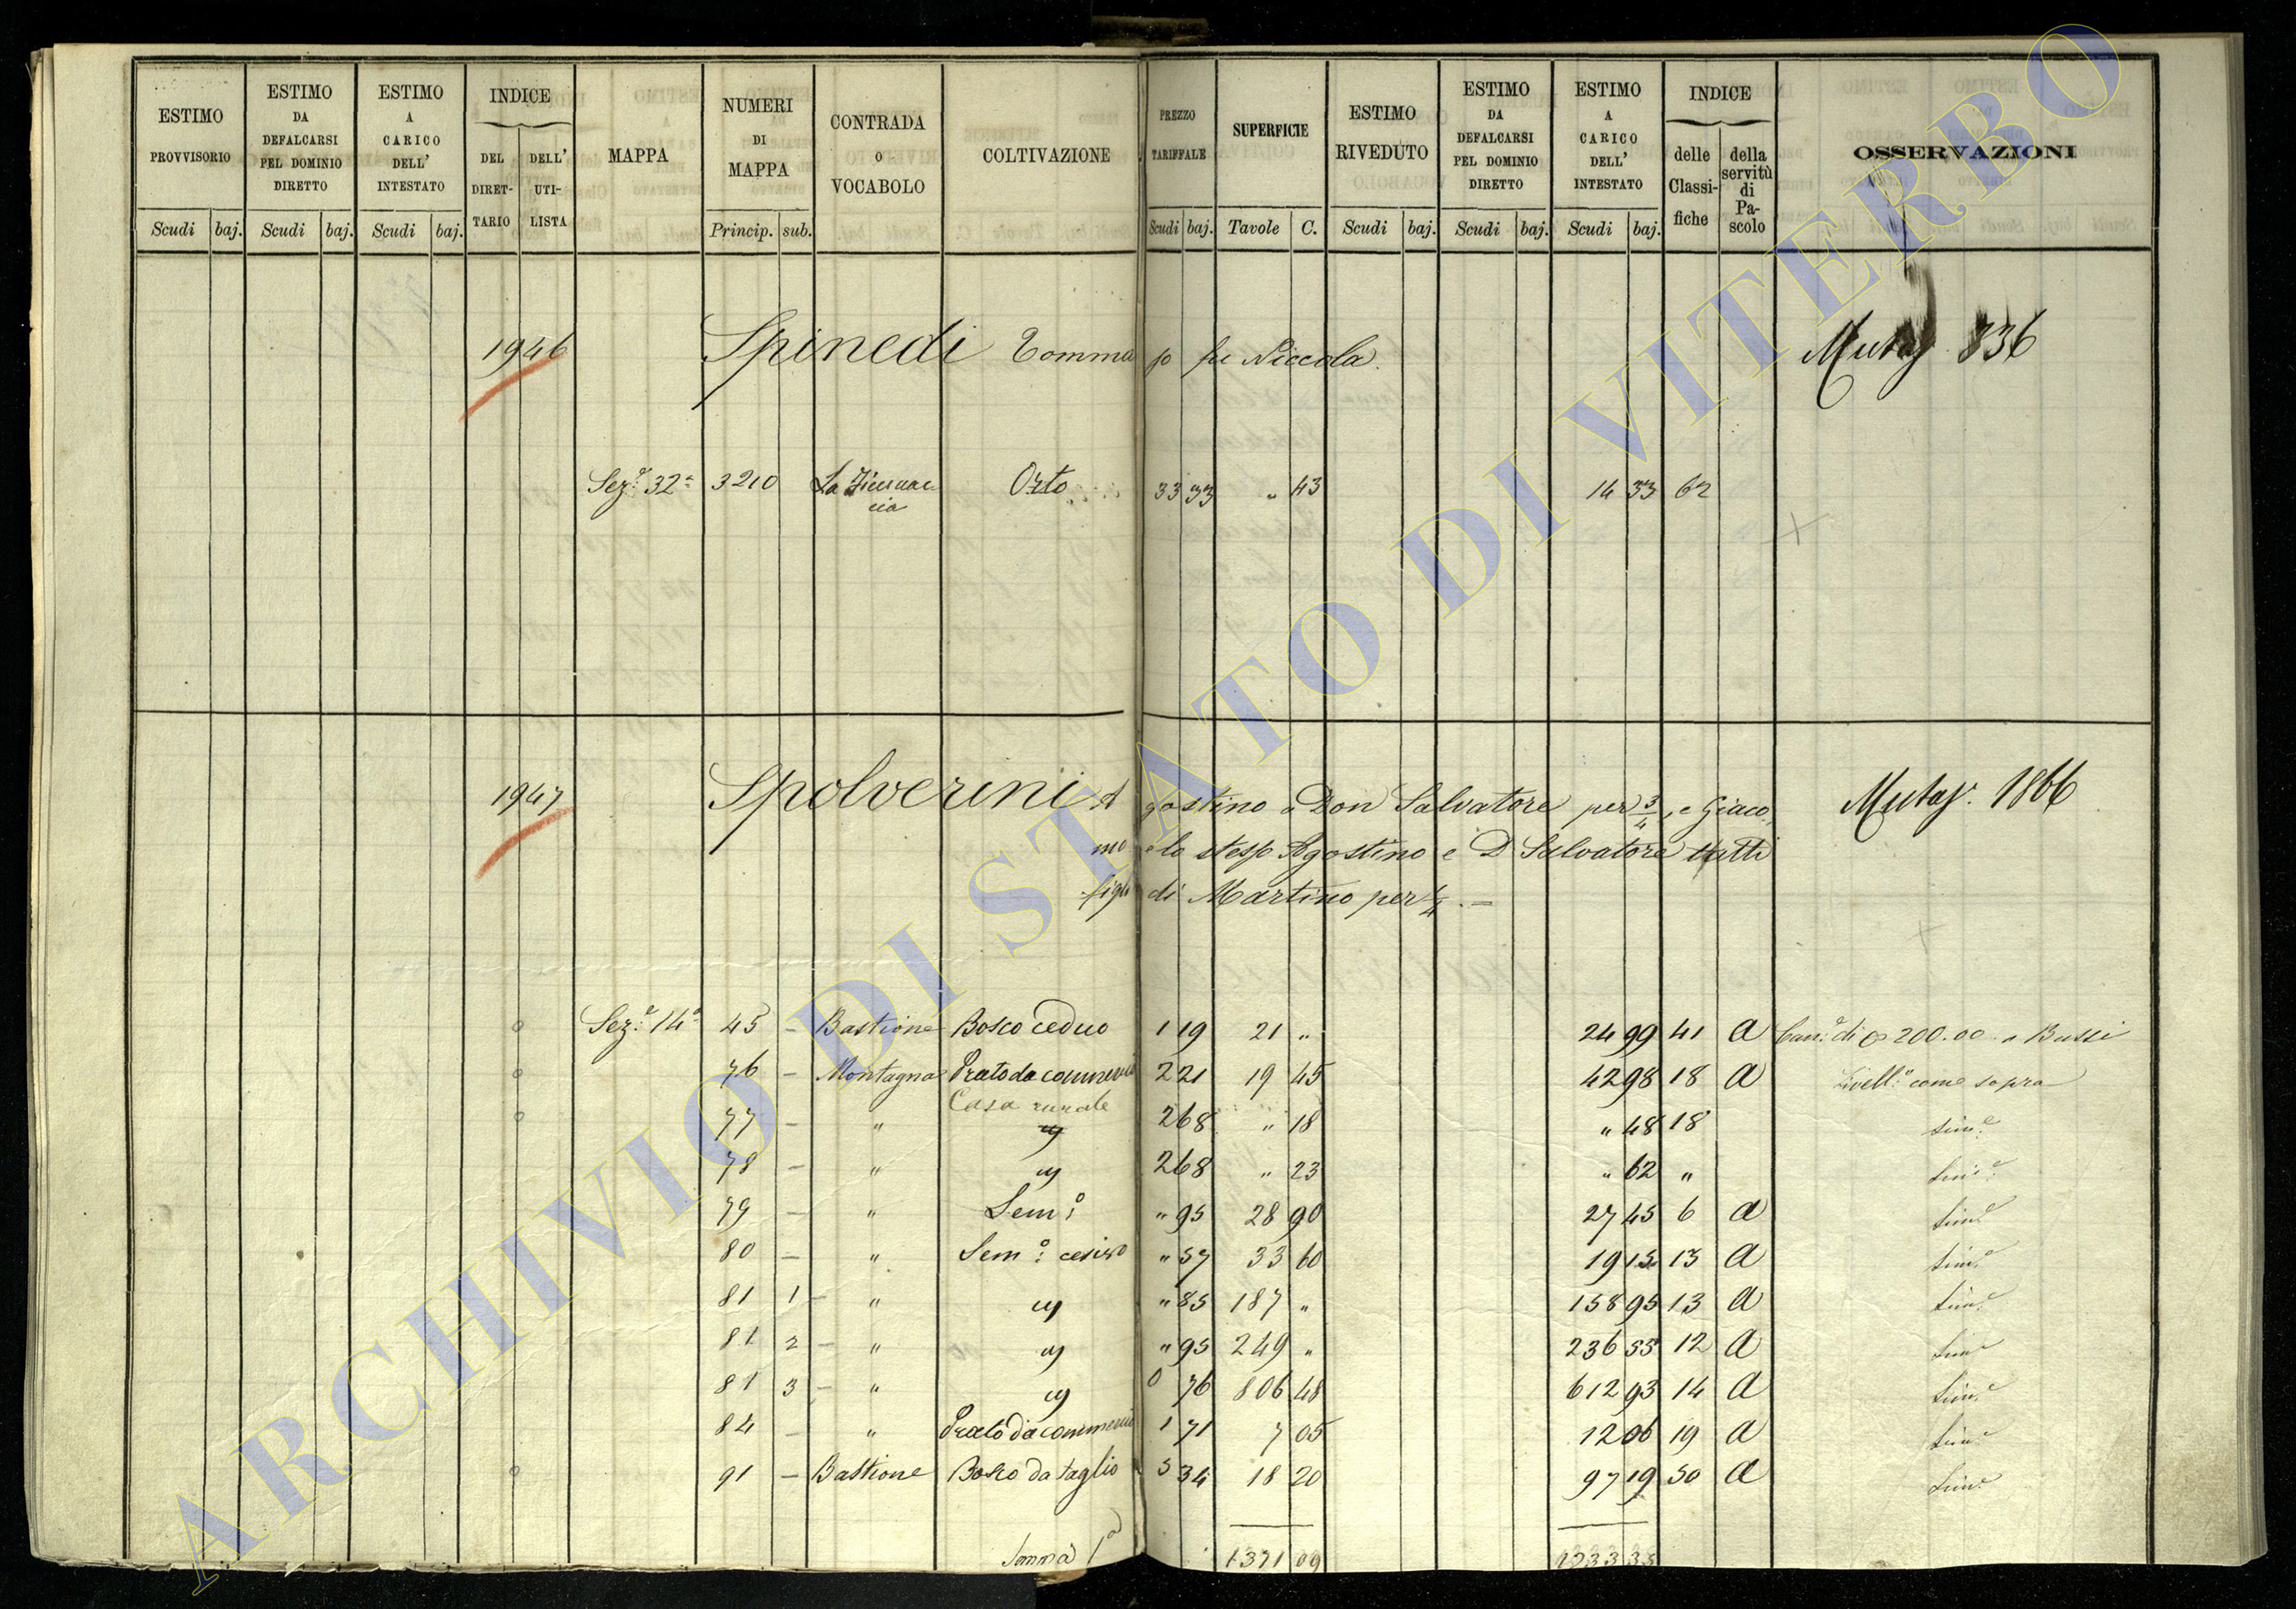 ESTIMO PROVVISORIO
Scudi baj.
ESTIMO DA DEFALCARSI PEL DOMINIO DIRETTO
Scudi baj.
ESTIMO A CARICO DELL' INTESTATO
Scudi baj.
INDICE
DEL DIRET- TARIO
DELL' UTI- LISTA
MAPPA
NUMERI DI MAPPA
Princip. sub.
CONTRADA O VOCABOLO
COLTIVAZIONE
PREZZO TARIFFALE
Scudi baj.
SUPERFICIE
Tavole C.
ESTIMO RIVEDUTO
Scudi baj.
ESTIMO DA DEFALCARSI PEL DOMINIO DIRETTO
Scudi baj.
ESTIMO A CARICO DELL' INTESTATO
Scudi baj.
INDICE
delle Classi- fiche
della servitù di Pa- scolo
OSSERVAZIONI
1946 Spinedi Tommaso fu Niccola. Mutaz 836
Sez.e 32a 3210 Orto 33 33 " 43 14 33 62
1947 Spolverini A gostino e Don Salvatore per 3/4, e Giaco Mutaz. 1866
mo e lo stesso Agostino e D Salvatore tutti
figli di Martino per 1/4. =
Sez.e 14a 45 - Bastione Bosco ceduo 1 19 21 " 24 99 41 a Can.e di 200.00 a Bussi
76 - Montagna Prato da commercio 2 21 19 45 42 98 18 a Livell.o come sopra
Casa rurale
77 - " 2 68 " 18 " 48 18 sim.e
78 - " " 2 68 " 23 " 62 " sim.e
79 - " Sem.o " 95 28 90 27 45 6 a sim.e
80 - " Sem.o cesivo " 57 33 60 19 15 13 a sim.e
81 1 - " " " 85 187 " 158 95 13 a sim.e
81 2 - " " " 95 249 " 236 55 12 a sim.e
81 3 - " " 0 76 806 48 612 93 14 a sim.e
84 - " Prato da commercio 1 71 7 05 12 06 19 a sim.e
91 - Bastione Bosco da taglio 5 34 18 20 97 19 50 a sim.e
Somma 1371 09 1233 35
ARCHIVIO DI STATO DI VITERBO